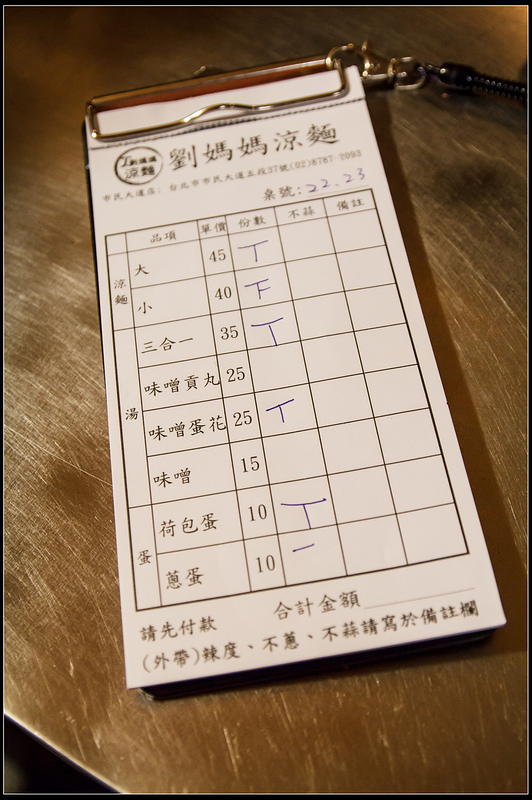 劉媽媽
涼麵
劉媽媽涼麵
市民大道店: 台北市市民大道五段37號(02)8787-2093
桌號: 22.23
品項 單價 份數 不蒜 備註
涼麵
大 45 丅
小 40 下
湯
三合一 35 丅
味噌貢丸 25
味噌蛋花 25 丅
味噌 15
蛋
荷包蛋 10 丅
蔥蛋 10 一
請先付款 合計金額
(外帶)辣度、不蔥、不蒜請寫於備註欄